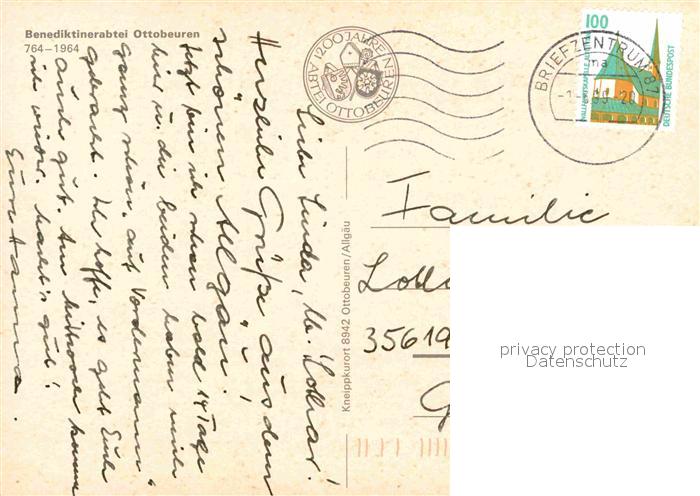 Benediktinerabtei Ottobeuren
764–1964
1200 JAHRE
ABTEI OTTOBEUREN
BRIEFZENTRUM 87
ma
100
WALLFAHRTSKAPELLE
DEUTSCHE BUNDESPOST
Liebe Linda, lb. Lothar!
Herzliche Grüße aus dem
schönen Allgäu.
Jetzt bin ich schon bald 14 Tage
hier u. die beiden haben mich
ganz schön "auf Vordermann"
gebracht. Ich hoffe, es geht Euch
auch gut. Am Mittwoch komme
ich wieder. Macht's gut!
Eure Hanna.
Kneippkurort 8942 Ottobeuren/Allgäu
Familie
35619
privacy protection
Datenschutz